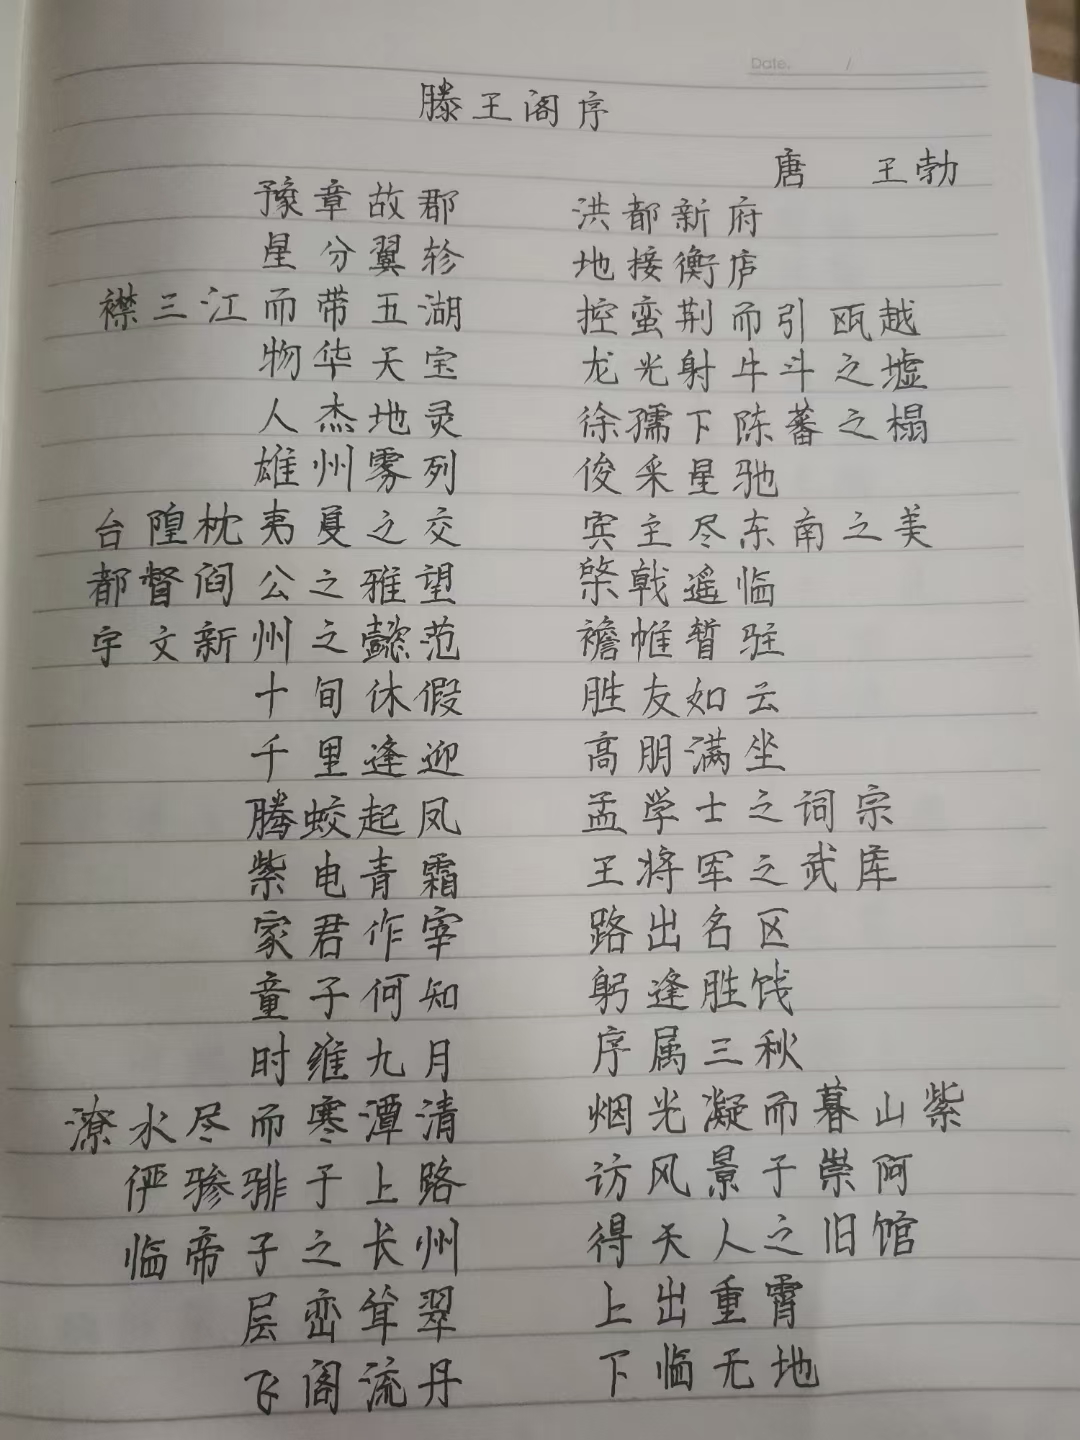 Date. /
滕王阁序
唐 王勃
豫章故郡 洪都新府
星分翼轸 地接衡店
襟三江而带五湖 控蛮荆而引瓯越
物华天宝 龙光射牛斗之墟
人杰地灵 徐孺下陈蕃之榻
雄州雾列 俊采星驰
台隍枕夷夏之交 宾主尽东南之美
都督阎公之雅望 棨戟遥临
宇文新州之懿范 襜帷暂驻
十旬休假 胜友如云
千里逢迎 高朋满坐
腾蛟起凤 孟学士之词宗
紫电青霜 王将军之武库
家君作宰 路出名区
童子何知 躬逢胜饯
时维九月 序属三秋
潦水尽而寒潭清 烟光凝而暮山紫
俨骖騑于上路 访风景于崇阿
临帝子之长州 得天人之旧馆
层峦耸翠 上出重霄
飞阁流丹 下临无地